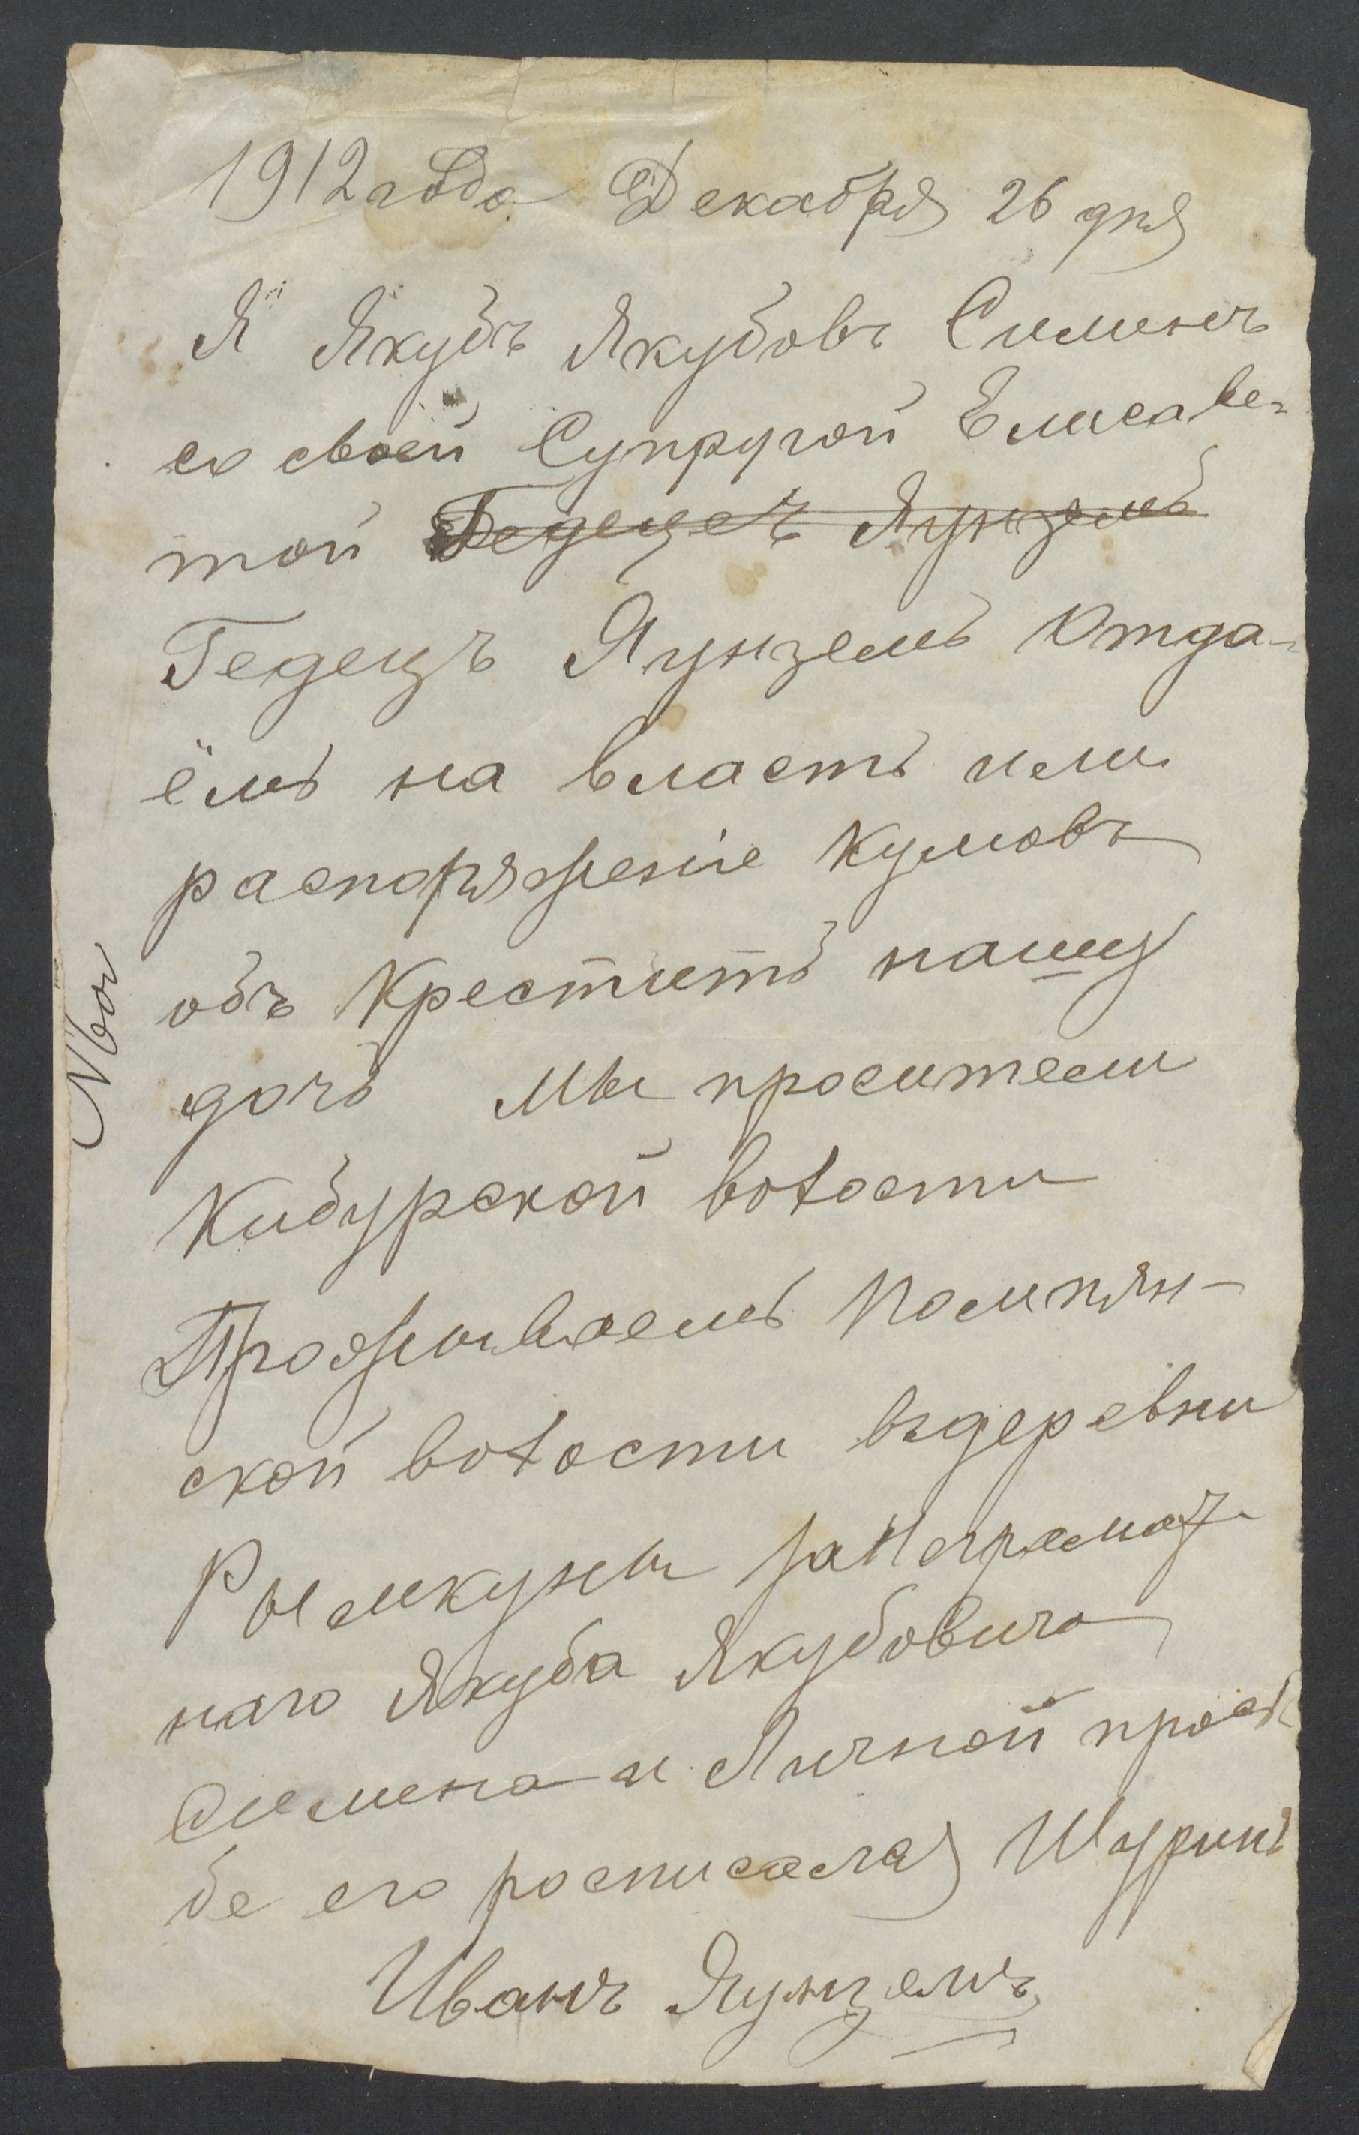 1912 года Декабря 26 дня
Я Якубъ Якубовъ Сименъ
со своей Супругой Елисаве-
той Гедецеъ Яунземъ
Гедецъ Яунземъ Отда-
ёмъ на властъ или
распоряженіе Кумовъ
объ Креститъ нашу
дочъ Мы просители
Кибурской волости
Проживаемъ Помпян-
ской волости въдеревни
Рымкуны за Неграмат-
наго Якуба Якубовича
Симена и Личной прозь
бе его росписалая Шуринъ
Иванъ Яунземъ